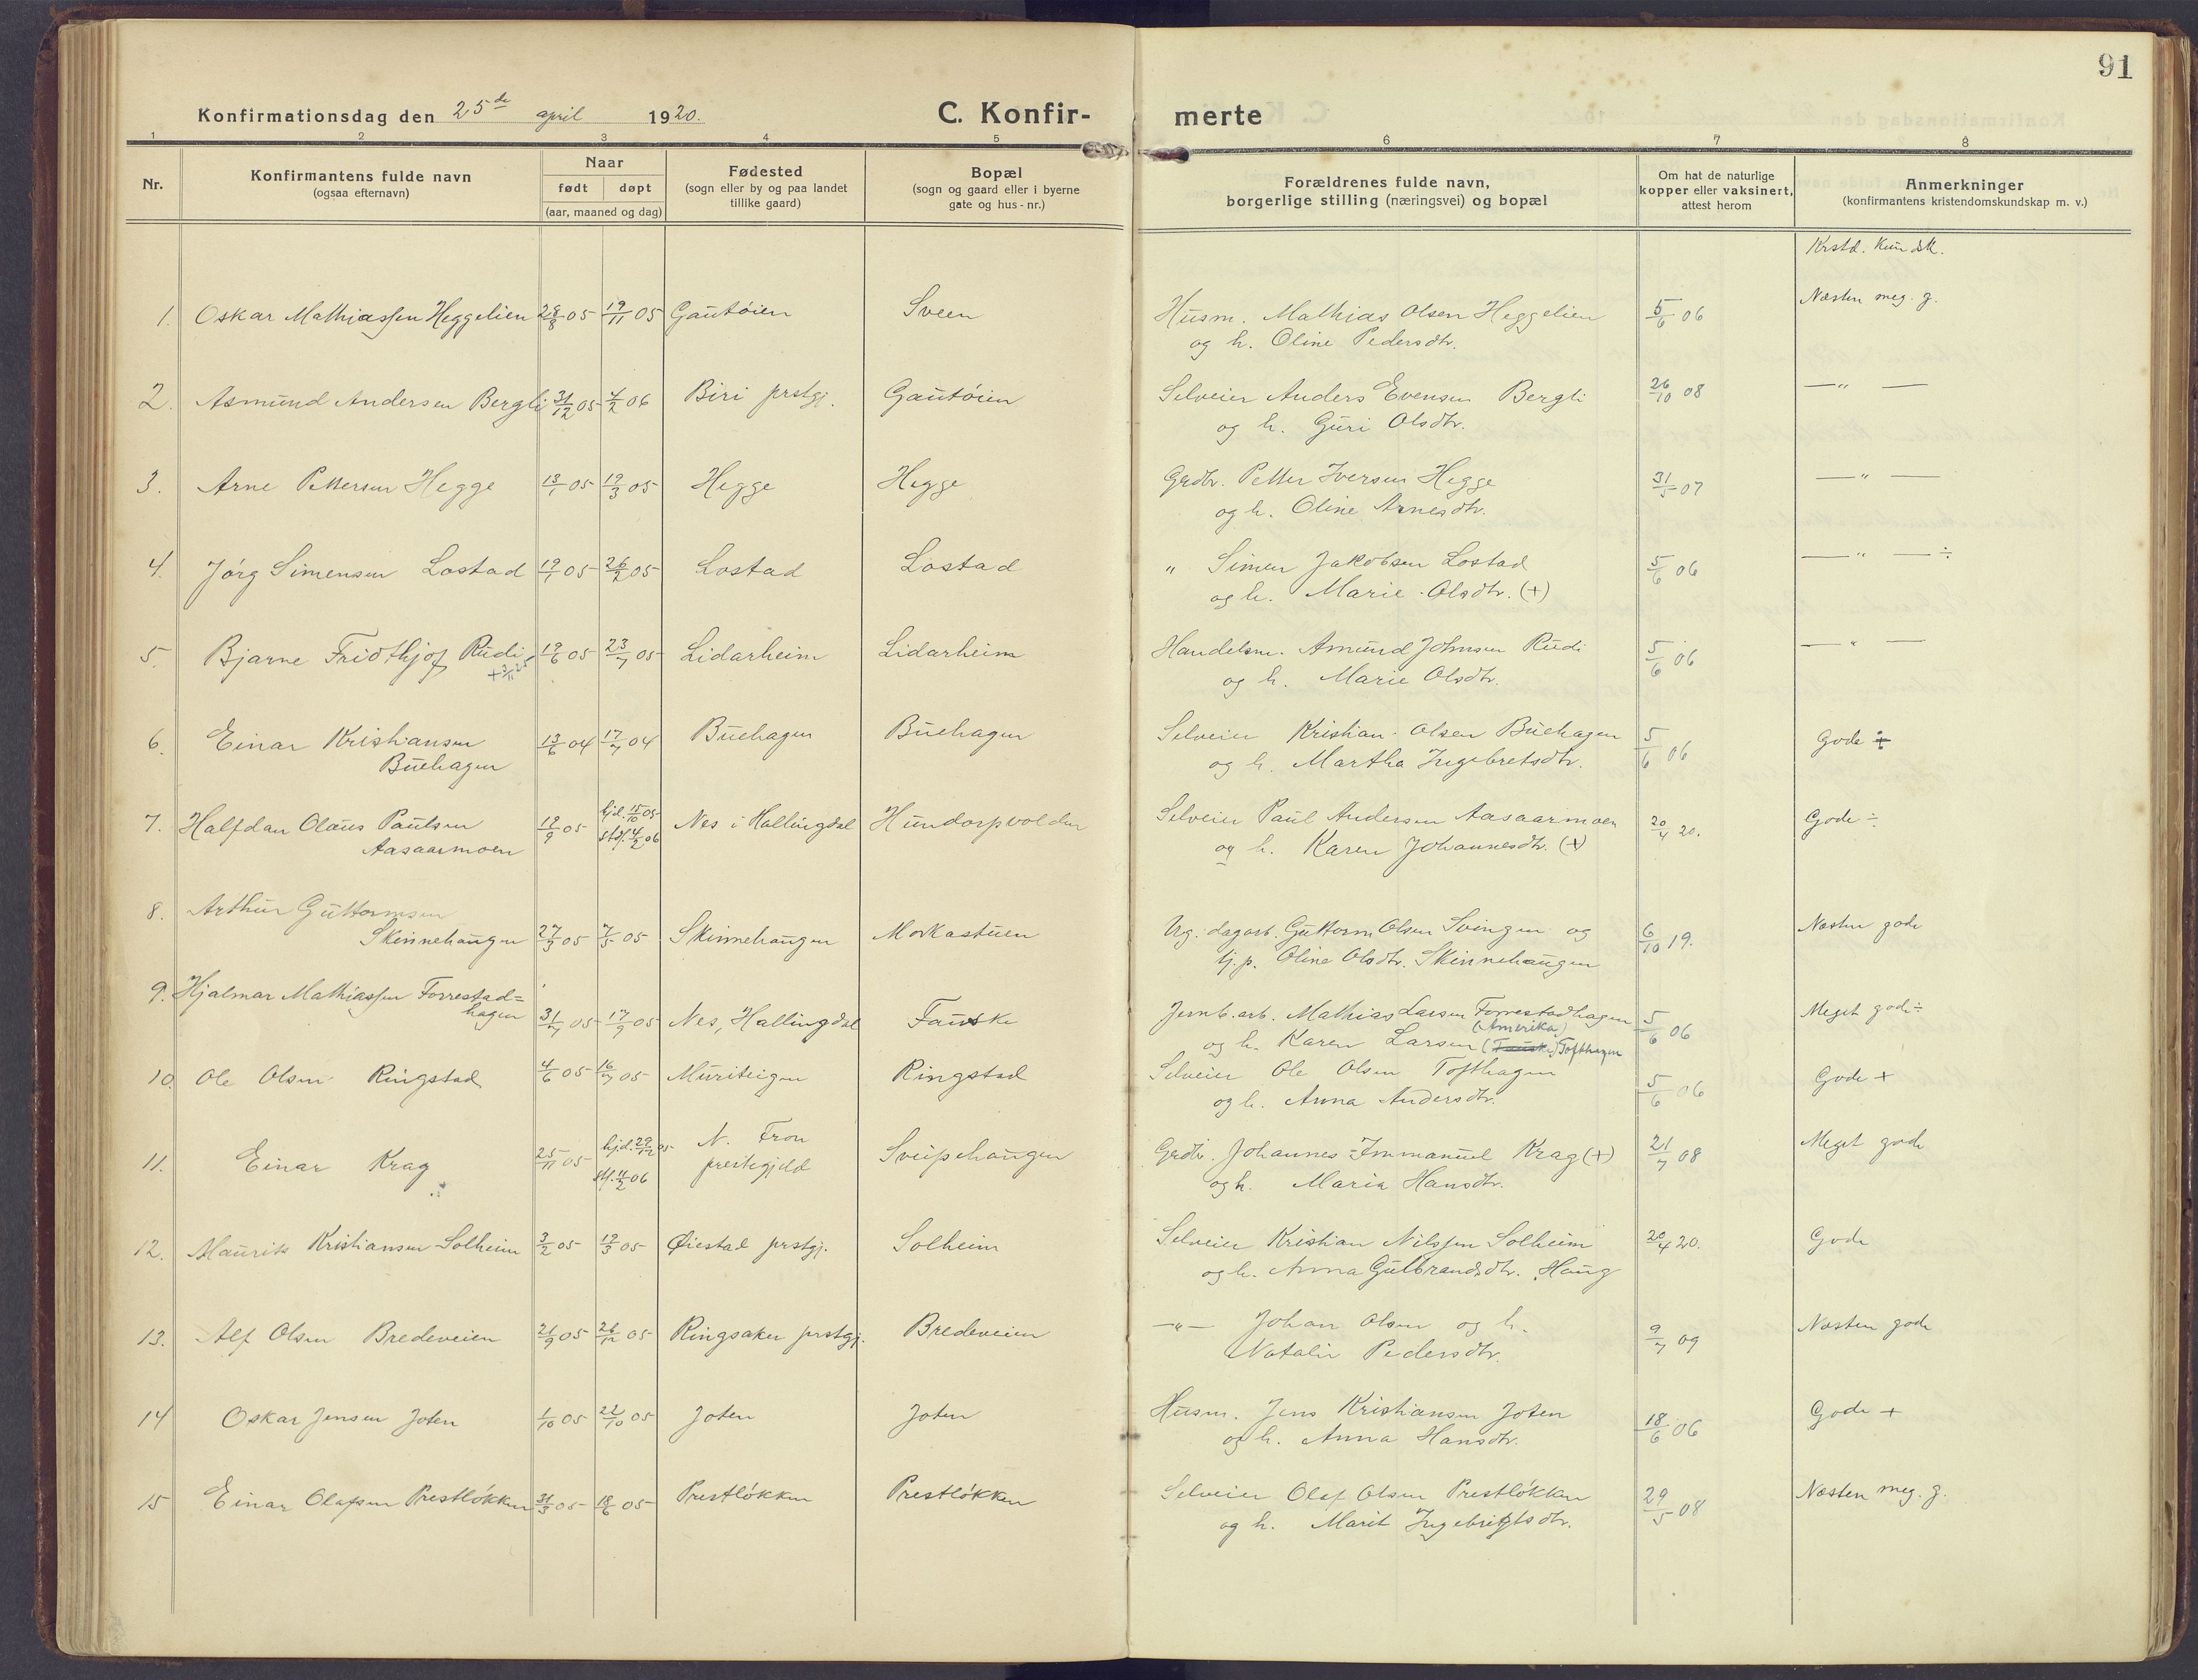 91
Konfirmationsdag den 25de april 1920. C. Konfir- merte
1 2 3 4 5 6 7 8
Nr. Konfirmantens fulde navn (ogsaa efternavn) Naar født døpt (aar, maaned og dag) Fødested (sogn eller by og paa landet tillike gaard) Bopæl (sogn og gaard eller i byerne gate og hus-nr.) Forældrenes fulde navn, borgerlige stilling (næringsvei) og bopæl Om hat de naturlige kopper eller vaksinert, attest herom Anmerkninger (konfirmantens kristendomskundskap m. v.)
Krstd. Kundsk.
1. Oskar Mathiassen Heggelien 28/8 05 19/11 05 Gautøien Sveen Husm. Mathias Olsen Heggelien 5/6 06 Næsten meg. g.
og h. Oline Pedersdtr.
2. Asmund Andersen Bergli 31/12 05 4/2 06 Biri prstgj. Gautøien Selveier Anders Evensen Bergli 26/10 08 — " —
og h. Guri Olsdtr.
3. Arne Pettersen Hegge 13/1 05 19/3 05 Hegge Hegge Grdbr. Petter Iversen Hegge 31/5 07 — " —
og h. Oline Arnesdtr.
4. Jørg Simensen Lostad 19/1 05 26/2 05 Lostad Lostad " Simen Jakobsen Lostad 5/6 06 — " — ÷
og h. Marie Olsdtr. (+)
5. Bjarne Fridthjof Rudi 19/6 05 23/7 05 Lidarheim Lidarheim Handelsm. Amund Johnsen Rudi 5/6 06 — " —
og h. Marie Olsdtr.
6. Einar Kristiansen 13/6 04 17/7 04 Buehagen Buehagen Selveier Kristian Olsen Buehagen 5/6 06 Gode
Buehagen og h. Martha Ingebretsdtr.
7. Halfdan Olaus Paulsen 19/9 05 hjd. 15/10 05 Nes i Hallingdal Hundorpvolden Selveier Paul Andersen Aasaarmoen 20/4 20. Gode ÷
Aasaarmoen stdf. 4/2 06 og h. Karen Johannesdtr. (+)
8. Arthur Guttormsen
Skinnehaugen 27/3 05 7/5 05 Skinnehaugen Morkastuen Ug. dagarb. Guttorm Olsen Svingen og 6/10 19. Næsten gode
tj. p. Oline Olsdtr. Skinnehaugen
9. Hjalmar Mathiassen Forrestad=
hagen 31/7 05 17/9 05 Nes, Hallingdal Fauske Jernb. arb. Mathias Larsen Forrestadhagen (Amerika) 5/6 06 Meget gode ÷
og h. Karen Larsen (Fauske) Tofthagen
10. Ole Olsen Ringstad 4/6 05 16/7 05 Muriteigen Ringstad Selveier Ole Olsen Tofthagen 5/6 06 Gode +
og h. Anna Andersdtr.
11. Einar Krag 25/11 05 hjd. 29/12 05 N. Fron Sveipehaugen Grdbr. Johannes Immanuel Krag (+) 21/7 08 Meget gode
stf. 11/2 06 prestegjeld og h. Maria Hansdtr.
12. Maurits Kristiansen Solheim 3/2 05 19/3 05 Øiestad prstgj. Solheim Selveier Kristian Nilssen Solheim 20/4 20. Gode
og h. Anna Gulbrandsdtr. Haug
13. Alf Olsen Bredeveien 21/9 05 26/12 05 Ringsaker prstgj. Bredeveien — " — Johan Olsen og h. 9/7 09 Næsten gode
Natalie Pedersdtr.
14 Oskar Jensen Joten 1/10 05 22/10 05 Joten Joten Husm. Jens Kristiansen Joten 18/6 06 Gode +
og h. Anna Hansdtr.
15 Einar Olafsen Prestløkken 31/3 05 18/6 05 Prestløkken Prestløkken Selveier Olaf Olsen Prestløkken 29/5 08 Næsten meg. g.
og h. Marit Ingebrigtsdtr.